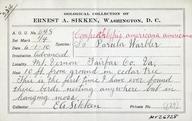 OOLOGICAL COLLECTION OF
ERNEST A. SIKKEN, WASHINGTON, D. C.
A. O. U. 648
Compsothlypis americana americana
Set Mark 1/4
So Parula Warbler
Date 6/1/10
Incubation Advanced
Mt. Vernon Fairfax Co. Va,
10 ft. from ground in cedar tree
This is the first time I have ever found
these birds nesting anywhere but in
hanging moss.
EA Sikken